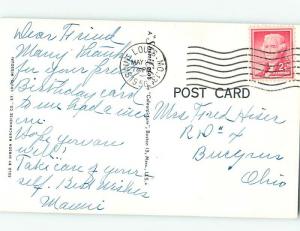 Dear Friend
Many thanks
for your pretty
Birthday card
to me had a nice
one
Hope you are
well
Take care of your
self. Best Wishes
Mamie
SAINT LOUIS, MO.
MAY
2¢
POST CARD
Mrs Fred Hiser
R D # 4
Bucyrus
Ohio